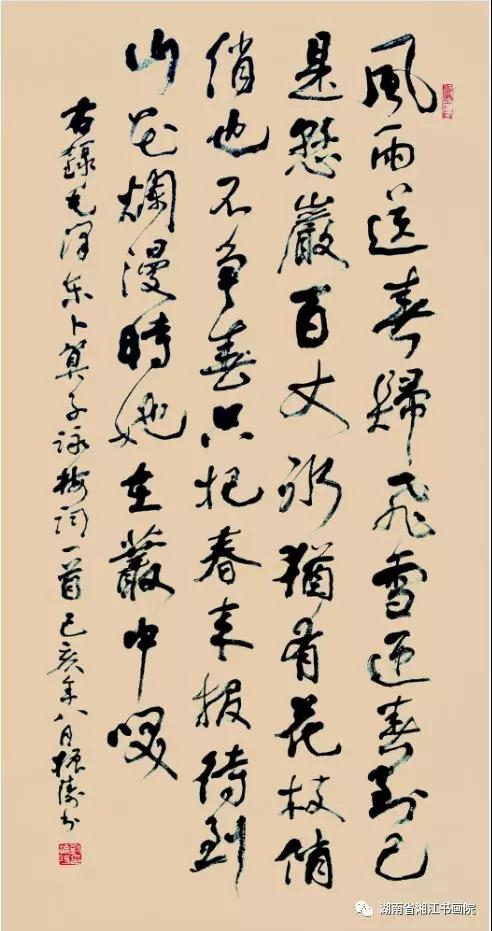 風雨送春歸飛雪迎春到已
是懸巖百丈冰猶有花枝俏
俏也不争春只把春来报待到
山花爛漫時她在叢中咲
右錄毛澤东卜算子詠梅词一首己亥年八月振涛书
湖南省湘江书画院